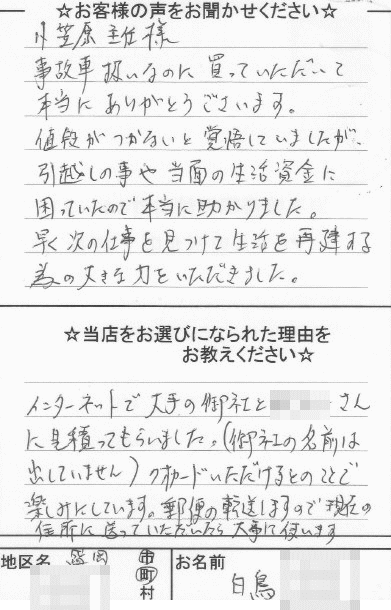 ☆お客様の声をお聞かせください☆
小笠原主任様
事故車扱いなのに買っていただいて
本当にありがとうございます。
値段がつかないと覚悟していましたが、
引越しの事や当面の生活資金に
困っていたので本当に助かりました。
早く次の仕事を見つけて生活を再建する
為の大きな力をいただきました。
☆当店をお選びになられた理由を
お教えください☆
インターネットで大手の御社と さん
に見積ってもらいました。(御社の名前は
出していません) クオカードいただけるとのことで
楽しみにしています。郵便の転送しますので現在の
住所に送っていただいたら大事に使います
地区名 盛岡 市町村
お名前 白鳥